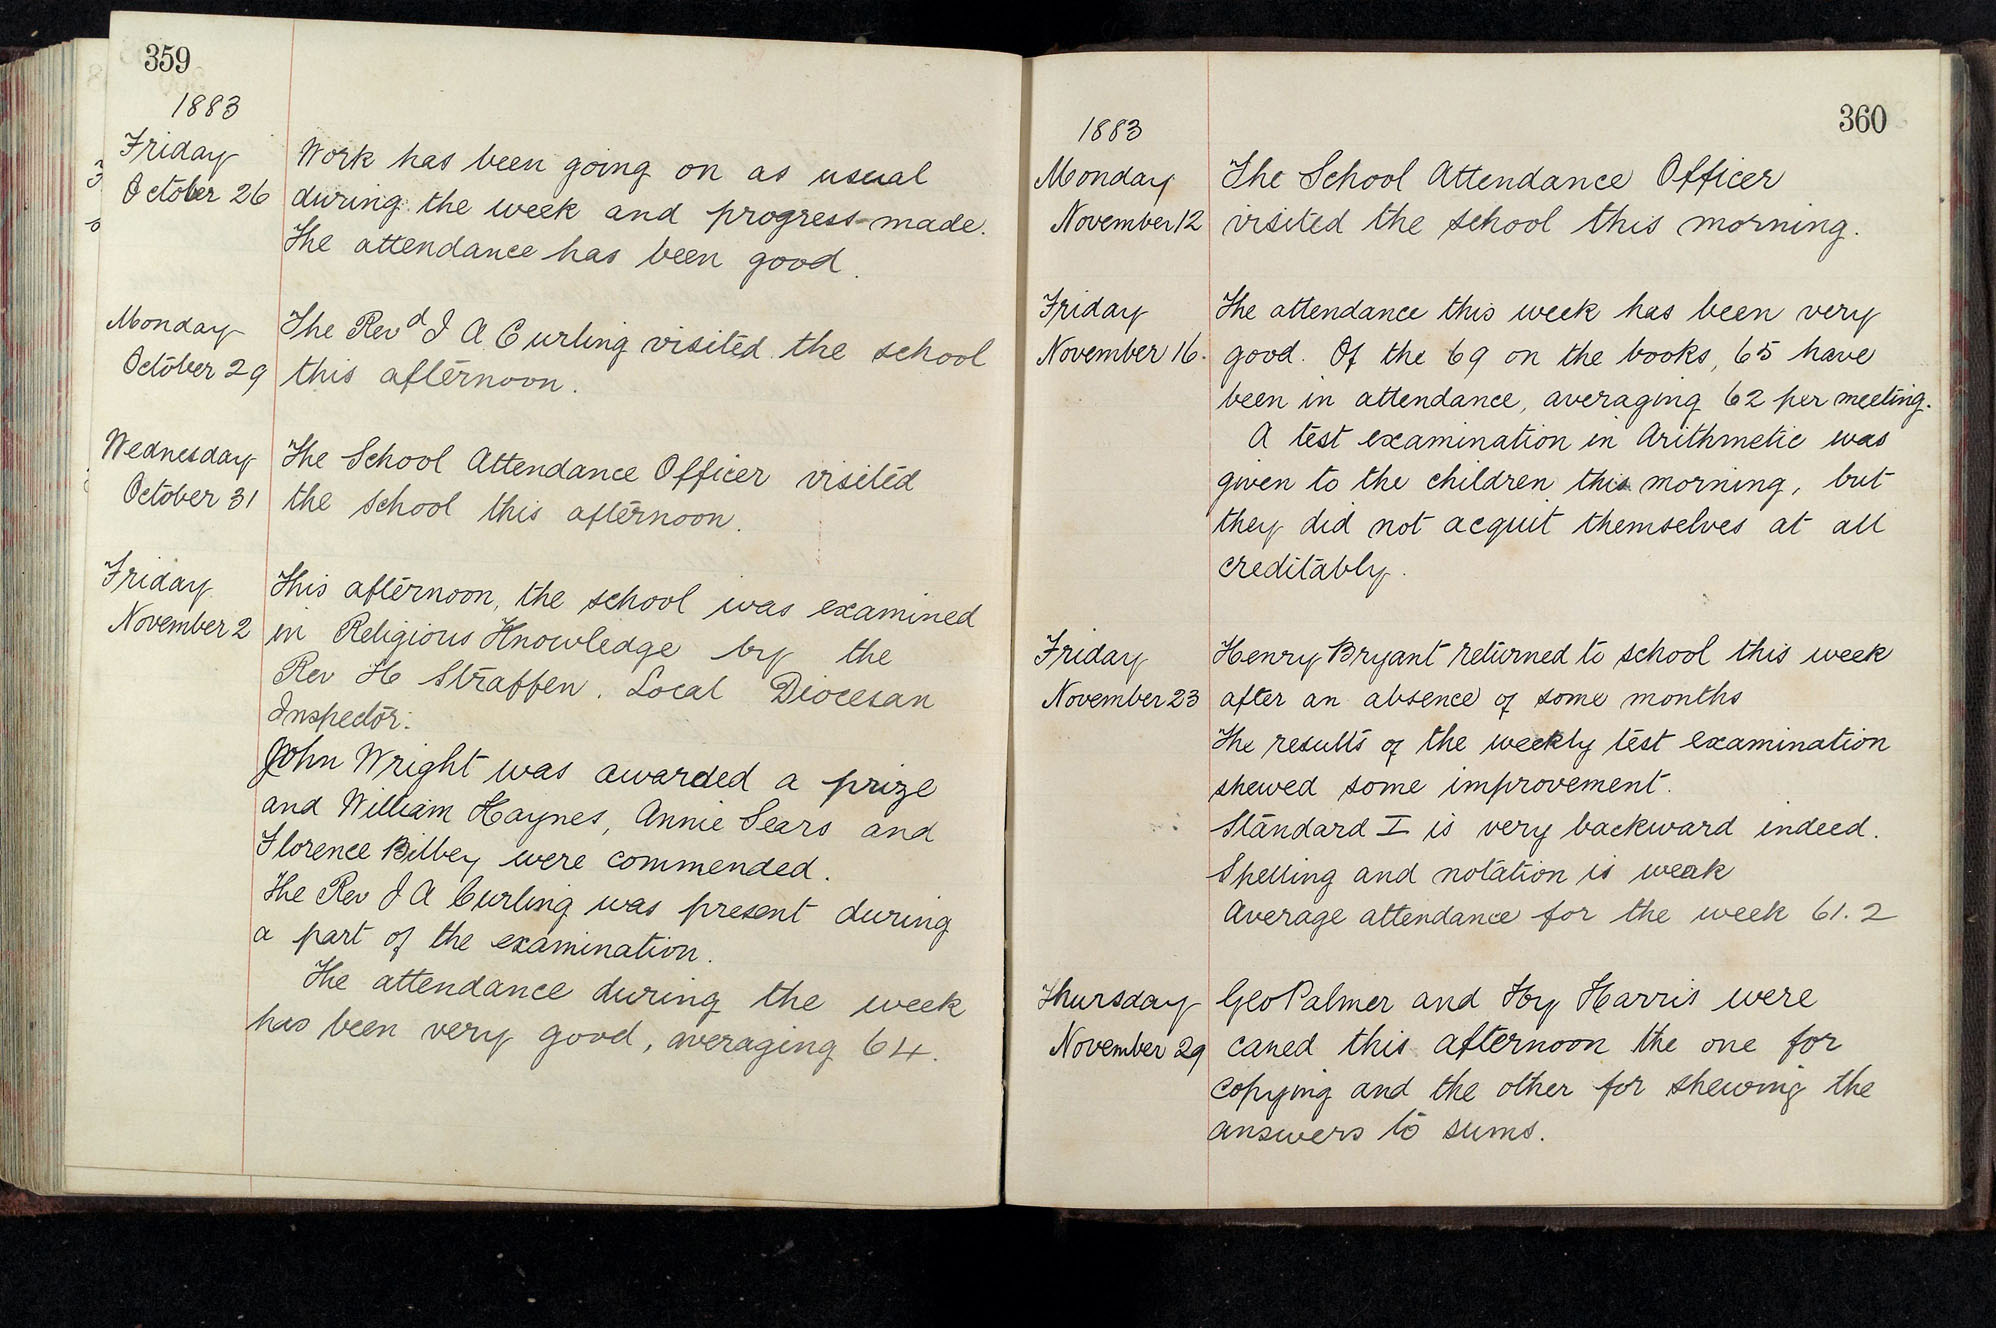 359
1883
Friday
October 26
Work has been going on as usual
during the week and progress made.
The attendance has been good.
Monday
October 29
The Revd J A Curling visited the school
this afternoon.
Wednesday
October 31
The School Attendance Officer visited
the school this afternoon.
Friday
November 2
This afternoon, the school was examined
in Religious Knowledge by the
Rev H Straffen. Local Diocesan
Inspector.
John Wright was awarded a prize
and William Haynes, Annie Sears and
Florence Bilbey were commended.
The Rev J A Curling was present during
a part of the examination.
The attendance during the week
has been very good, averaging 64.
360
1883
Monday
November 12
The School Attendance Officer
visited the school this morning.
Friday
November 16.
The attendance this week has been very
good. Of the 69 on the books, 65 have
been in attendance, averaging 62 per meeting.
A test examination in Arithmetic was
given to the children this morning, but
they did not acquit themselves at all
creditably.
Friday
November 23
Henry Bryant returned to school this week
after an absence of some months
The results of the weekly test examination
shewed some improvement.
Standard I is very backward indeed.
Spelling and notation is weak
Average attendance for the week 61.2
Thursday
November 29
Geo Palmer and Hy Harris were
caned this afternoon the one for
copying and the other for shewing the
answers to sums.